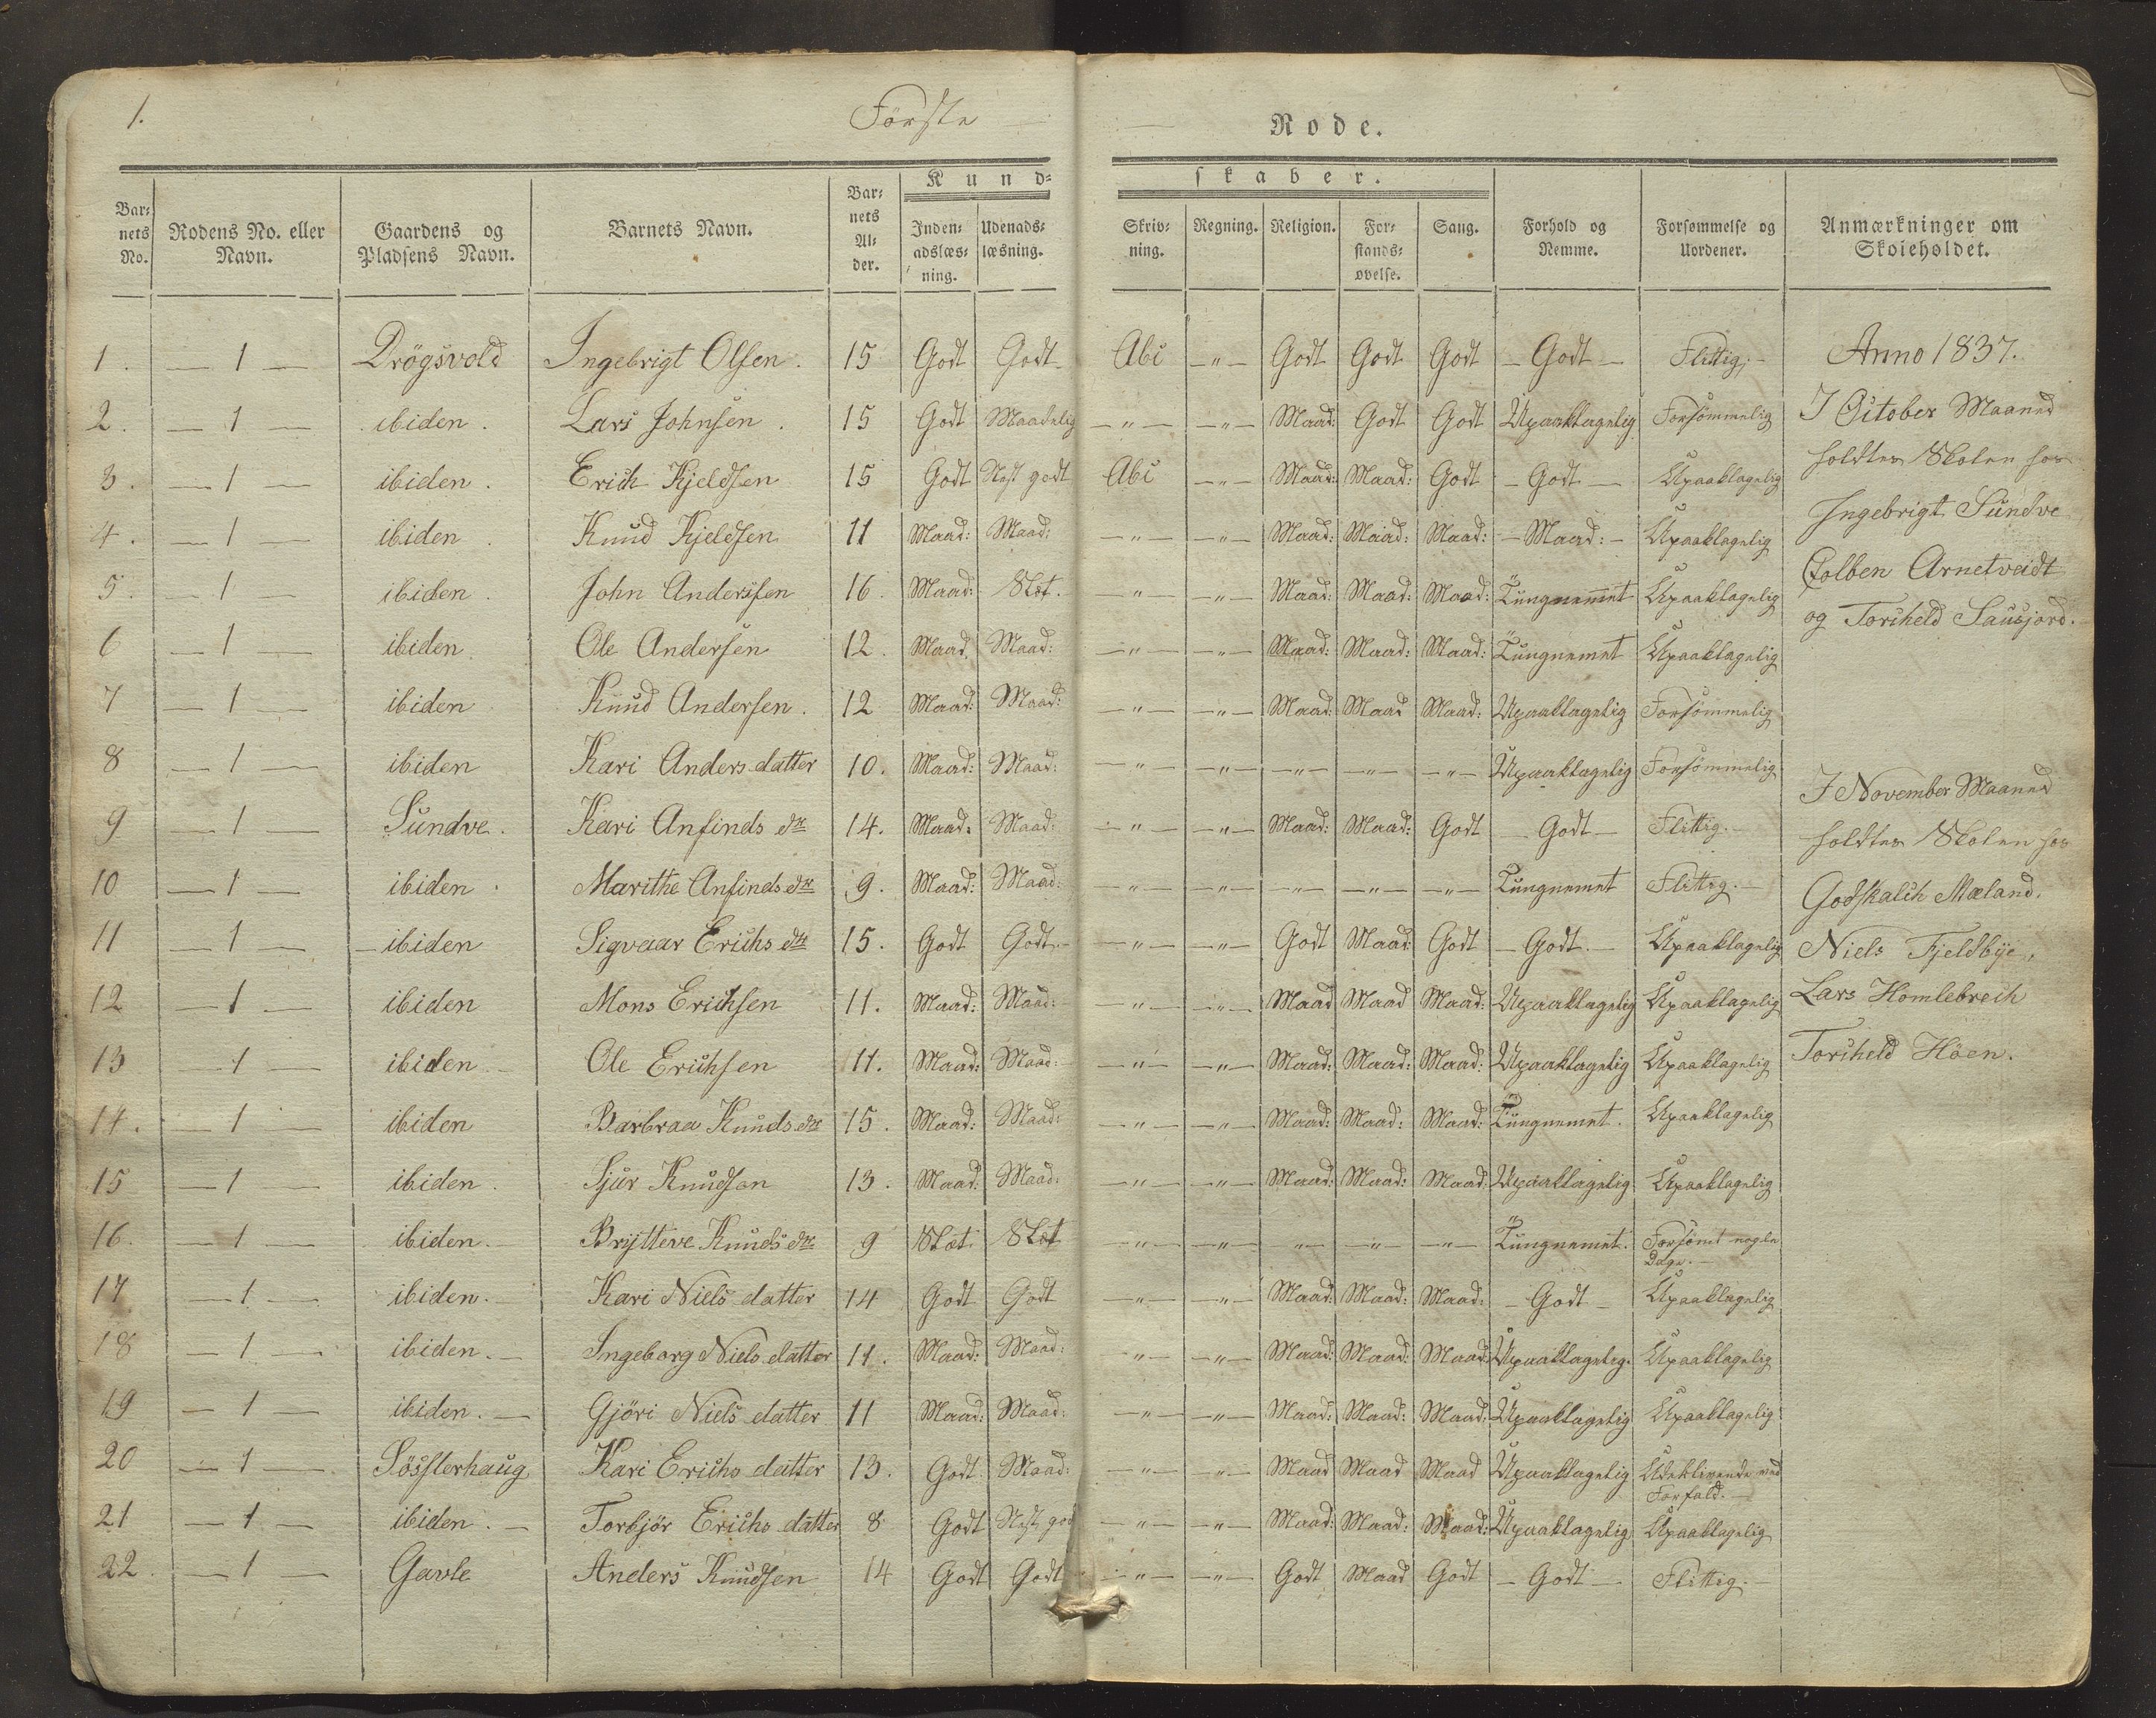 1. Förste Rode.
Kundskaber.
Barnets No. Rodens No. eller Navn. Gaardens og Pladsens Navn. Barnets Navn. Barnets Alder. Indenadslæsning. Udenadslæsning. Skrivning. Regning. Religion. Forstandsøvelse. Sang. Forhold og Nemme. Forsømmelse og Uordener. Anmærkninger om Skoleholdet.
1. — 1 — Drögsvold Ingebrigt Olsen. 15 Godt Godt Abc — " — Godt Godt Godt — Godt — Flittig. —
2. — 1 — ibiden. Lars Johnsen. 15 Godt Maadelig — " — — " — Maad: Godt Godt Upaaklagelig Forsömmelig
3. — 1 — ibiden. Erich Kjeldsen 15 Godt Næst godt Abc — " — Maad: Maad: Godt — Godt — Upaaklagelig
4. — 1 — ibiden. Knud Kjeldsen 11 Maad: Maad: — " — — " — Maad: Maad: Maad: — Maad: — Upaaklagelig
5. — 1 — ibiden. John Andersen 16. Maad: Slet. — " — — " — Maad: Maad: Maad: Tungnemmet Upaaklagelig
6 — 1 — ibiden Ole Andersen 12. Maad. Maad: — " — — " — Maad: Maad: Maad: Tungnemet Upaaklagelig
7 — 1 — ibiden Knud Andersen. 12 Maad: Maad: — " — — " — Maad: Maad Maad: Upaaklagelig Forsömmelig
8 — 1 — ibiden Kari Anders datter 10. Maad: Maad: — " — — " — — " — — " — — " — Upaaklagelig Forsömmelig
9 — 1 — Sundve. Kari Anfinds dtr 14. Maad: Maad: — " — — " — Maad: Maad: Godt — Godt — Flittig. —
10 — 1 — ibiden. Marithe Anfinds dtr 9. Maad: Maad: — " — — " — — " — — " — — " — Tungnemet Flittig. —
11 — 1 — ibiden Sigvaar Erichs dtr 15. Godt Godt. — " — — " — Godt Maad: Godt — Godt. — Upaaklagelig
12 — 1 — ibiden Mons Erichsen 11. Maad: Maad: — " — — " — Maad Maad Maad: Upaaklagelig Upaaklagelig
13 — 1 — ibiden Ole Erichsen 11. Maad: Maad: — " — — " — Maad: Maad: Maad: Upaaklagelig Upaaklagelig
14. — 1 — ibiden Barbraa Knuds dtr 15. Maad: Maad: — " — — " — Maad: Maad: Maad: Tungnemet. Upaaklagelig
15 — 1 — ibiden. Sjur Knudsen 13. Maad: Maad: — " — — " — Maad: Maad: Maad: Upaaklagelig Upaaklagelig
16. — 1 — ibiden. Brytteve Knuds dtr 9 Slet Slet — " — — " — — " — — " — — " — Tungnemet. Forsömt nogle Dage. —
17 — 1 — ibiden. Kari Niels datter 14 Godt Godt — " — — " — Maad: Maad: Maad: — Godt — Upaaklagelig
18 — 1 — ibiden. — Ingeborg Niels datter 11. Maad: Maad: — " — — " — Maad: Maad: Maad: Upaaklagelig. Upaaklagelig
19 — 1 — ibiden. — Gjöri Niels datter 11 Maad: Maad: — " — — " — Maad: Maad: Maad: Upaaklagelig Upaaklagelig
20 — 1 — Söfterhaug Kari Erichs datter 13. Godt Maad: — " — — " — Maad Maad Maad Upaaklagelig Udeblivende med Forfald. —
21 — 1 — ibiden. — Torbjör Erichs datter 8 Godt Næst god — " — — " — Maad: Maad: Maad: Upaaklagelig Upaaklagelig
22. — 1 — Gavle Anders Knudsen 14 Godt Godt — " — — " — Godt Maad Godt — Godt — Flittig. —
Anno 1837.
I October Maaned
holdtes Skolen hos
Ingebrigt Sundve
Colben Arnetveidt
og Torcheld Sausjord.
I November Maaned
holdtes Skolen hos
Godskalch Mæland.
Niels Fjeldbye,
Lars Homlebrech
Torcheld Höen.